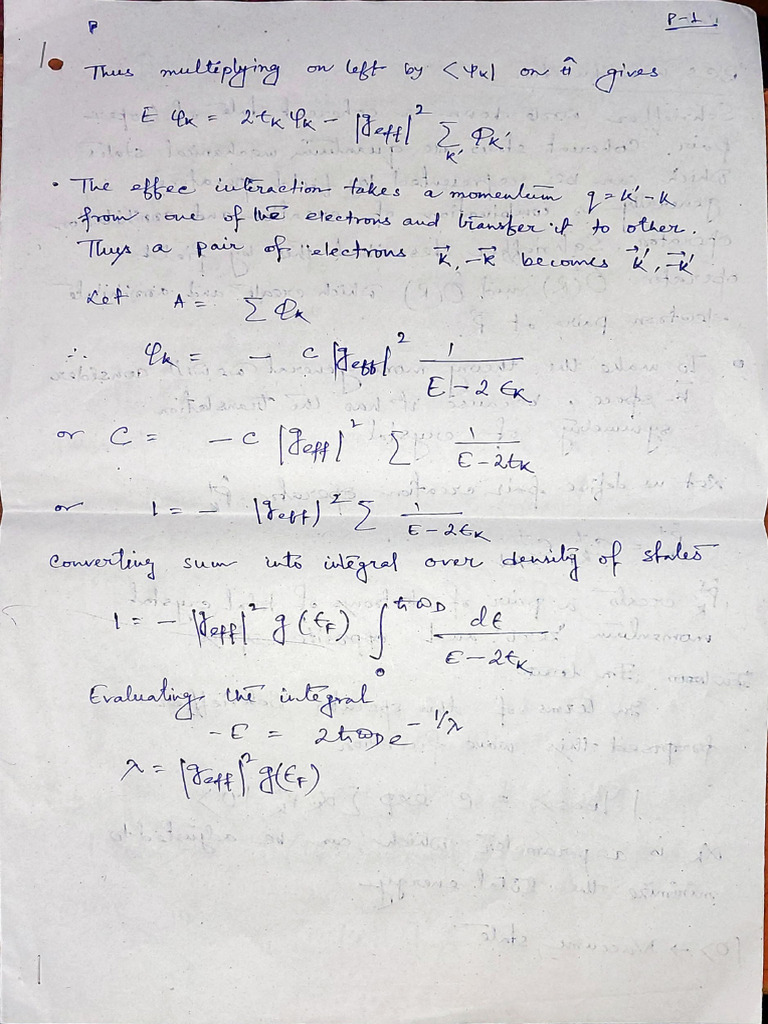 P-1
1.
Thus multiplying on left by <Ψk| on Ĥ gives
E φk = 2εk φk - |geff|² Σk' φk'
• The effec interaction takes a momentum q = k' - k
from one of the electrons and transfer it to other.
Thus a pair of electrons k⃗, -k⃗ becomes k⃗', -k⃗'
Let A = Σ φk
∴ φk = - C |geff|² 1/(E - 2εk)
or C = - C |geff|² Σ 1/(E - 2εk)
or 1 = - |geff|² Σ 1/(E - 2εk)
Converting sum into integral over density of states
1 = - |geff|² g(εF) ∫₀^ħωD dε/(E - 2εk)
Evaluating the integral
-E = 2ħωD e^-1/λ
λ = |geff|² g(εF)